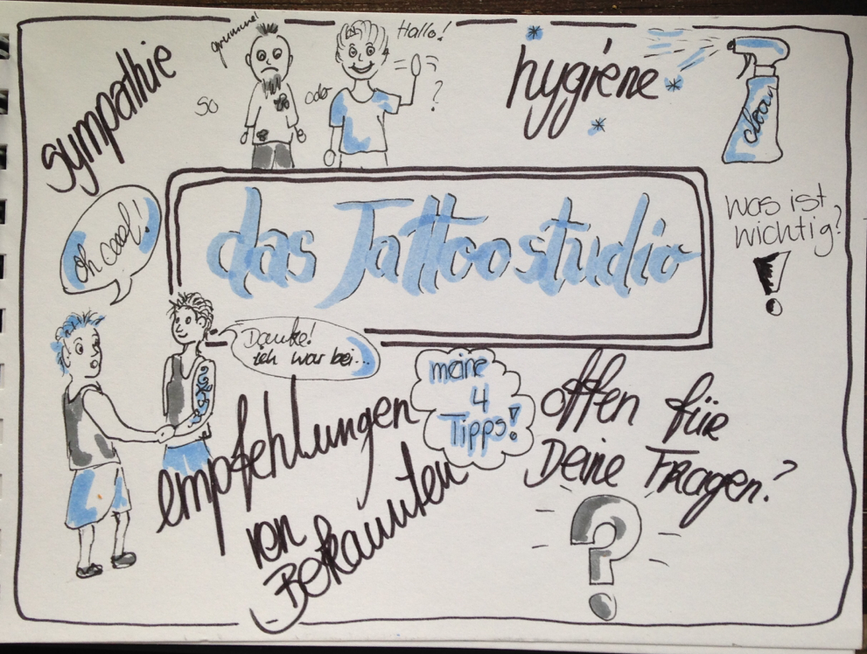 sympathie
grummel
so
oder
Hallo!
?
hygiene
was ist
wichtig?
!
das Tattoostudio
oh cool!
Danke!
Ich war bei...
meine
4
Tipps!
empfehlungen
von
Bekannten
offen für
Deine Fragen?
?